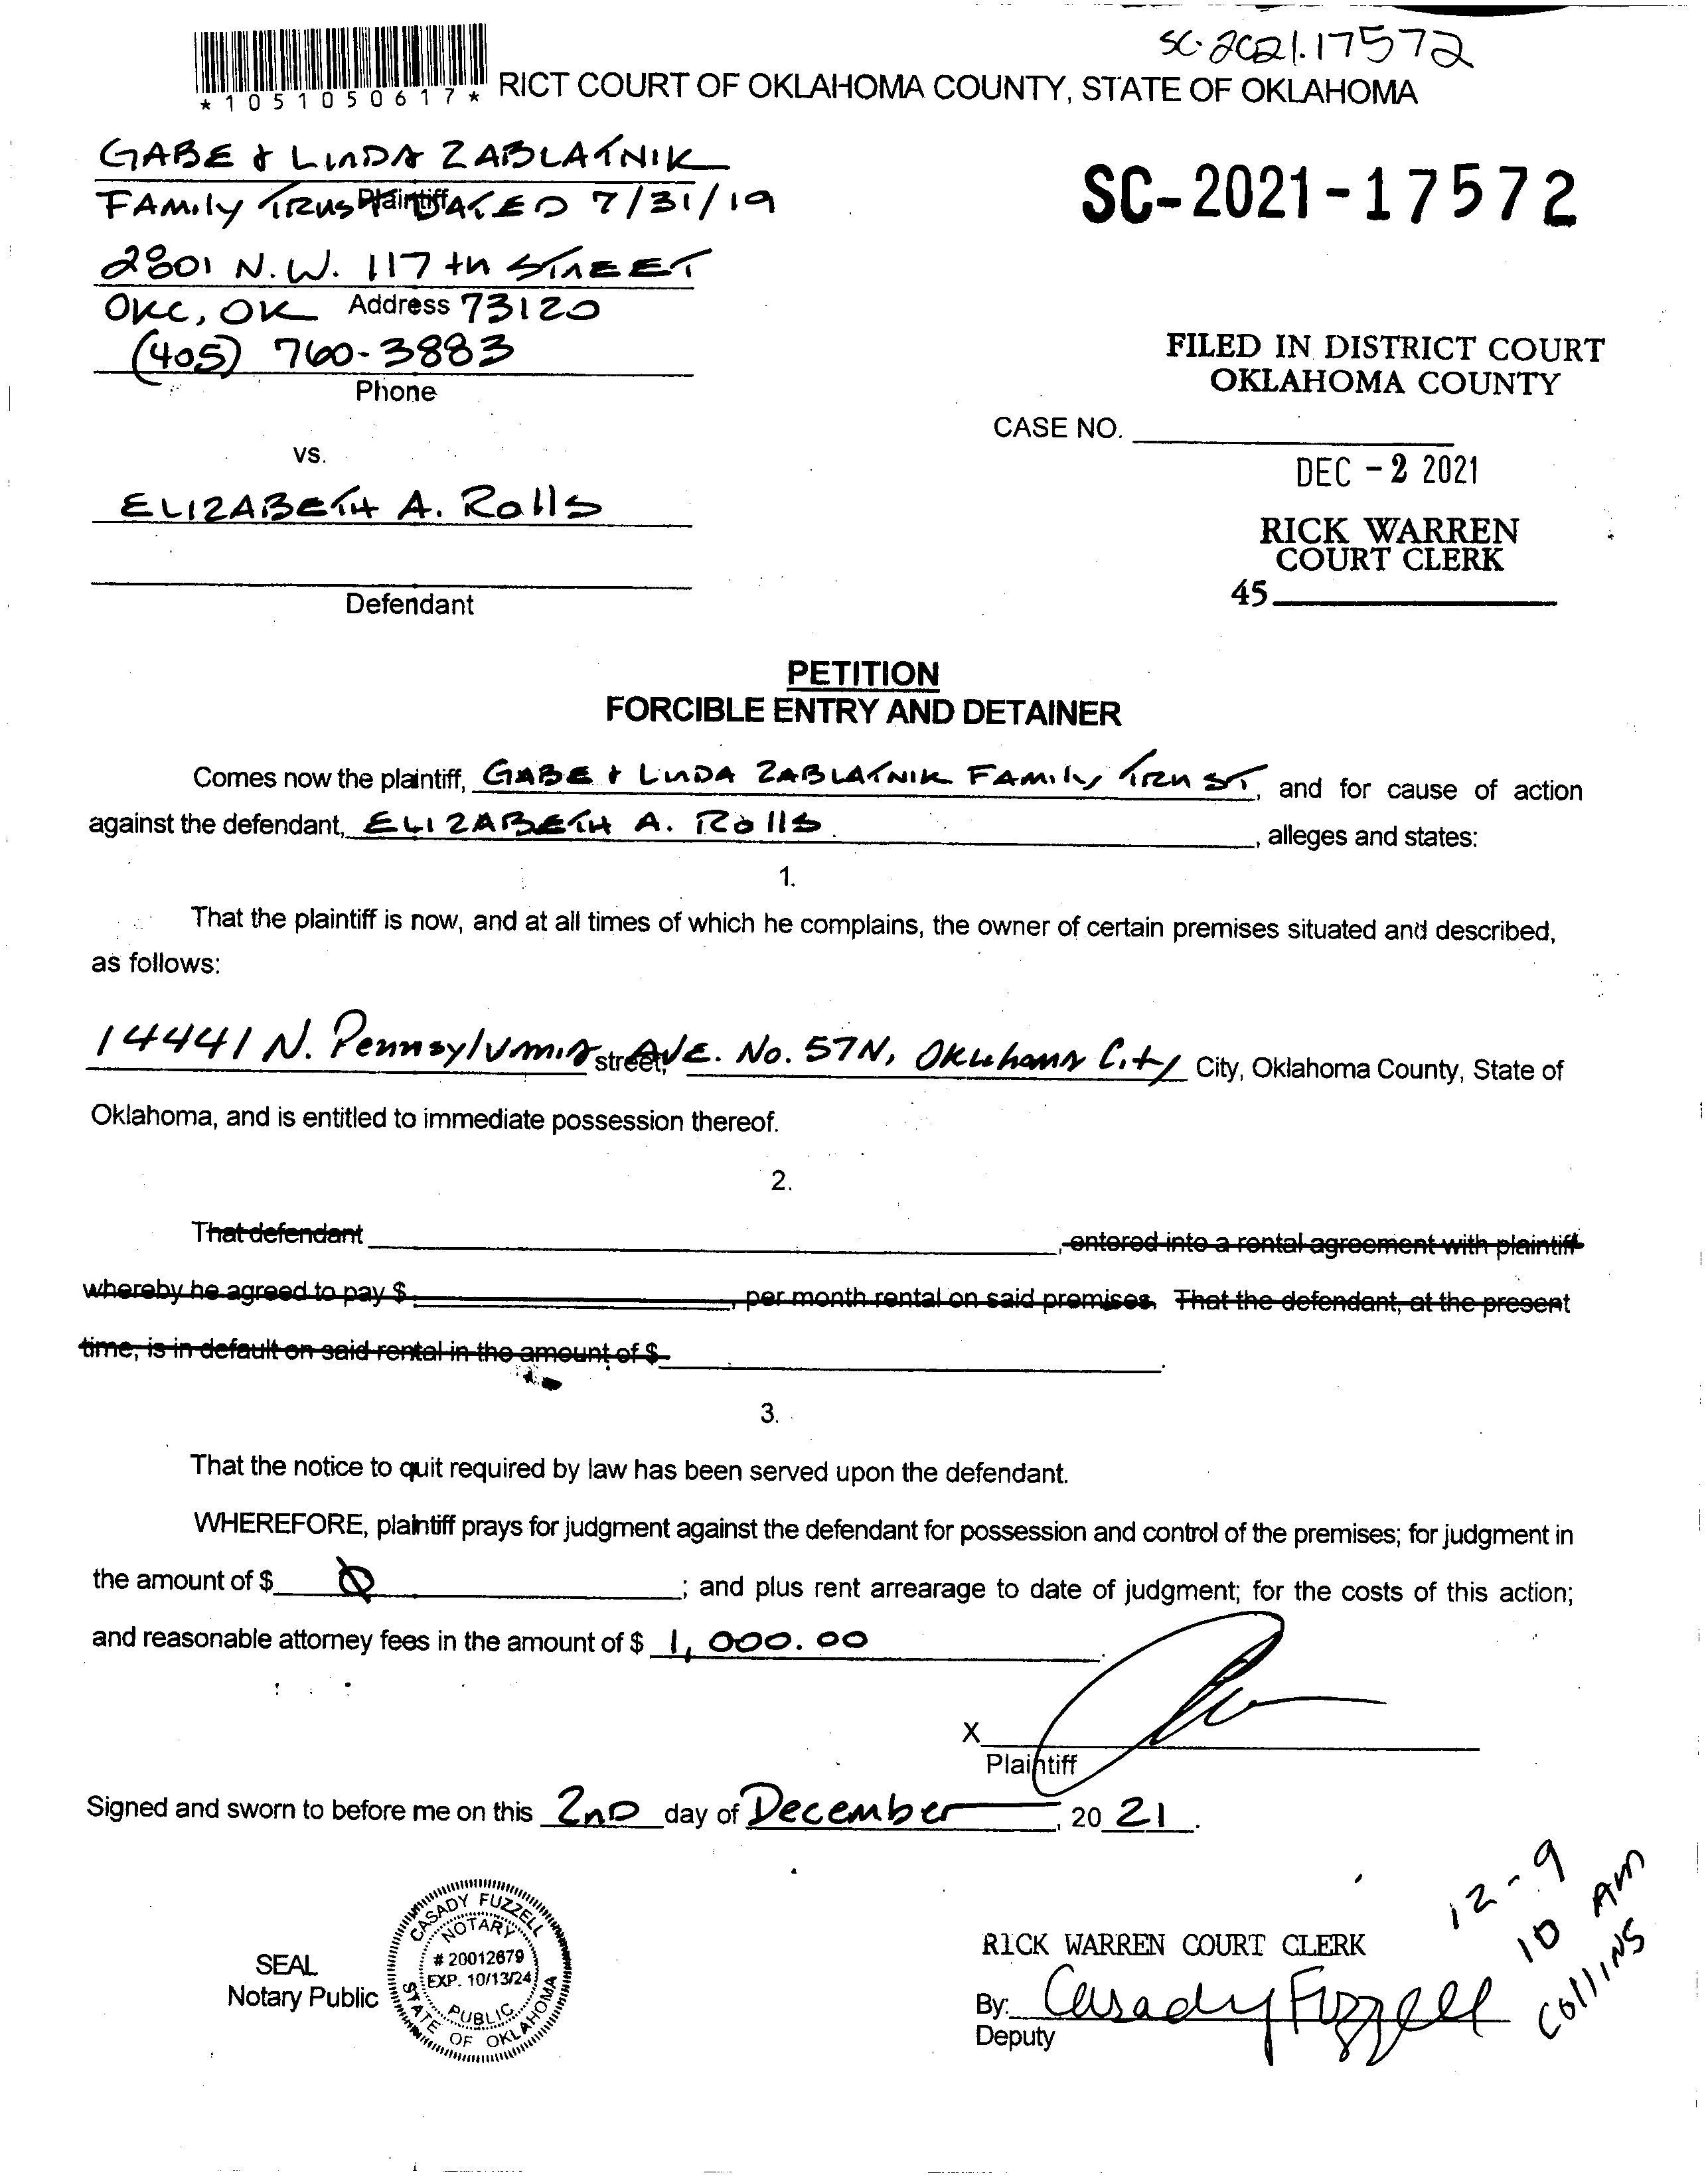 SC-2021-17572
*1051050617* RICT COURT OF OKLAHOMA COUNTY, STATE OF OKLAHOMA
GABE & LINDA ZABLATNIK
FAMILY TRUST DATED 7/31/19
Plaintiff
SC-2021-17572
2801 N.W. 117th STREET
OKC, OK Address 73120
(405) 760-3883
Phone
FILED IN DISTRICT COURT
OKLAHOMA COUNTY
CASE NO.
vs.
DEC -2 2021
ELIZABETH A. Rolls
RICK WARREN
COURT CLERK
45
Defendant
PETITION
FORCIBLE ENTRY AND DETAINER
Comes now the plaintiff, GABE & LINDA ZABLATNIK FAMILY TRUST, and for cause of action
against the defendant, ELIZABETH A. Rolls, alleges and states:
1.
That the plaintiff is now, and at all times of which he complains, the owner of certain premises situated and described,
as follows:
14441 N. Pennsylvania street, AVE. No. 57N, Oklahoma City City, Oklahoma County, State of
Oklahoma, and is entitled to immediate possession thereof.
2.
That defendant , entered into a rental agreement with plaintiff
whereby he agreed to pay $ , per month rental on said premises. That the defendant, at the present
time, is in default on said rental in the amount of $ .
3.
That the notice to quit required by law has been served upon the defendant.
WHEREFORE, plaintiff prays for judgment against the defendant for possession and control of the premises; for judgment in
the amount of $ 0 ; and plus rent arrearage to date of judgment; for the costs of this action;
and reasonable attorney fees in the amount of $ 1,000.00.
X
Plaintiff
Signed and sworn to before me on this 2nd day of December, 20 21.
12-9
10 AM
Collins
SEAL
Notary Public
CASADY FUZZELL
NOTARY
# 20012679
EXP. 10/13/24
PUBLIC
STATE OF OKLAHOMA
RICK WARREN COURT CLERK
By: Casady Fuzzell
Deputy